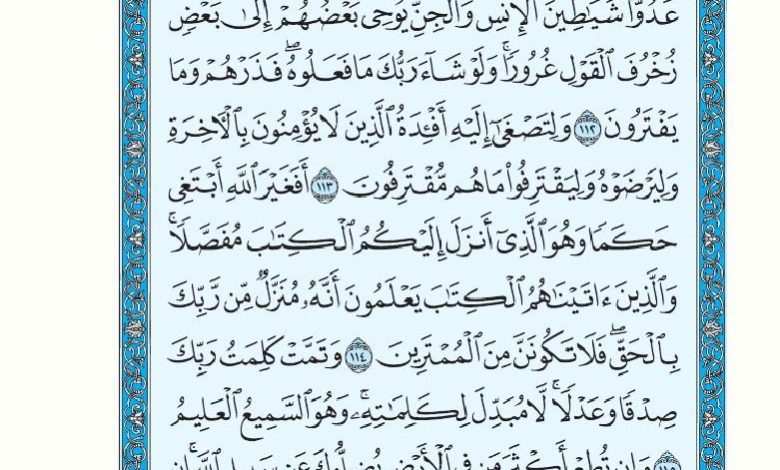 عَدُوًّا شَيَٰطِينَ ٱلْإِنسِ وَٱلْجِنِّ يُوحِى بَعْضُهُمْ إِلَىٰ بَعْضٍ
زُخْرُفَ ٱلْقَوْلِ غُرُورًا ۚ وَلَوْ شَآءَ رَبُّكَ مَا فَعَلُوهُ ۖ فَذَرْهُمْ وَمَا
يَفْتَرُونَ ١١٢ وَلِتَصْغَىٰٓ إِلَيْهِ أَفْـِٔدَةُ ٱلَّذِينَ لَا يُؤْمِنُونَ بِٱلْـَٔاخِرَةِ
وَلِيَرْضَوْهُ وَلِيَقْتَرِفُوا۟ مَا هُم مُّقْتَرِفُونَ ١١٣ أَفَغَيْرَ ٱللَّهِ أَبْتَغِى
حَكَمًا وَهُوَ ٱلَّذِىٓ أَنزَلَ إِلَيْكُمُ ٱلْكِتَٰبَ مُفَصَّلًا ۚ
وَٱلَّذِينَ ءَاتَيْنَٰهُمُ ٱلْكِتَٰبَ يَعْلَمُونَ أَنَّهُۥ مُنَزَّلٌ مِّن رَّبِّكَ
بِٱلْحَقِّ ۖ فَلَا تَكُونَنَّ مِنَ ٱلْمُمْتَرِينَ ١١٤ وَتَمَّتْ كَلِمَتُ رَبِّكَ
صِدْقًا وَعَدْلًا ۚ لَّا مُبَدِّلَ لِكَلِمَٰتِهِۦ ۚ وَهُوَ ٱلسَّمِيعُ ٱلْعَلِيمُ
١١٥ وَإِن تُطِعْ أَكْثَرَ مَن فِى ٱلْأَرْضِ يُضِلُّوكَ عَن سَبِيلِ ٱللَّهِ ۚ إِن